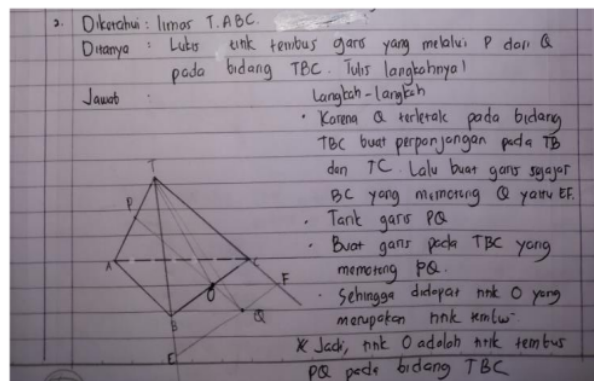 2. Diketahui : limas T.ABC.
Ditanya : Lukis titik tembus garis yang melalui P dari Q
pada bidang TBC. Tulis langkahnya!
Jawab :
Langkah-langkah
• Karena Q terletak pada bidang
TBC buat perpanjangan pada TB
dan TC. Lalu buat garis sejajar
BC yang memotong Q yaitu EF.
• Tarik garis PQ
• Buat garis pada TBC yang
memotong PQ.
• Sehingga didapat titik O yang
merupakan titik
* Jadi, titik O adalah titik tembus
PQ pada bidang TBC
T
P
A
C
F
O
B
Q
E